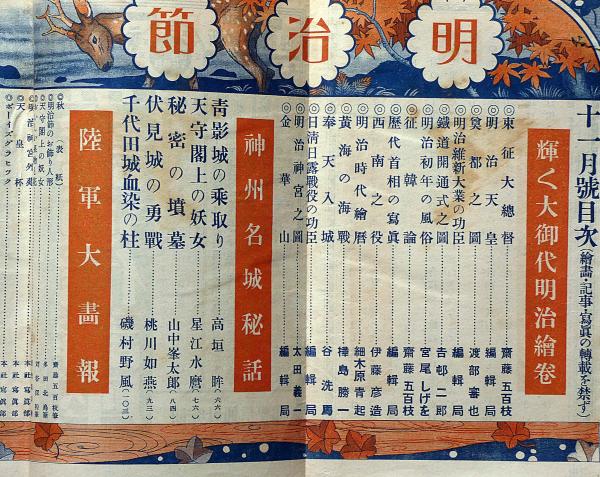 明治節
十一月號目次（繪畫・記事・寫眞の轉載を禁ず）
輝く大御代明治繪卷
◎東征大總督……齋藤五百枝
◎明治天皇……編輯局
◎奠都之圖……渡部審也
明治維新大業の功臣……編輯局
◎鐵道開通式之圖……吉邨二郎
◎明治初年の風俗……宮尾しげを
◎征韓論……齋藤五百枝
歷代首相の寫眞……編輯局
◎西南之役……伊藤彦造
◎明治時代繪曆……細木原青起
◎黃海の海戰……樺島勝一
◎奉天入城……谷洗馬
日淸日露戰役の功臣……編輯局
◎明治神宮之圖……太田義一
◎金華山……編輯局
神州名城秘話
靑影城の乘取り……高垣眸（六六）
天守閣上の妖女……星江水麿（七六）
秘密の墳墓……山中峯太郎（八四）
伏見城の勇戰……桃川如燕（九三）
千代田城血染の柱……磯村野風（一〇三）
陸軍大畫報
◎秋（表紙）……齋藤五百枝
◎明治節のお飾り人形
◎天守閣上の妖女
◎天皇杯……本社寫眞部
◎ボーイズグラヒック……本社寫眞部